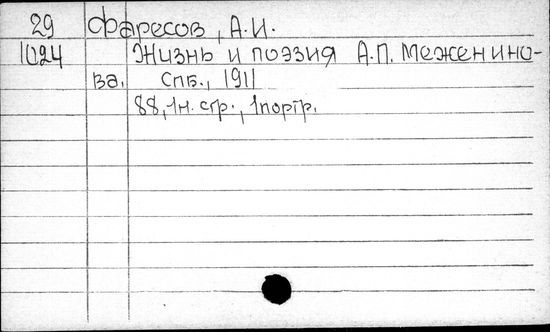 29 Фаресов, А.И.
1024 Жизнь и поэзия А.П. Меженино-
ва. Спб., 1911
88, 1н. стр., 1 портр.